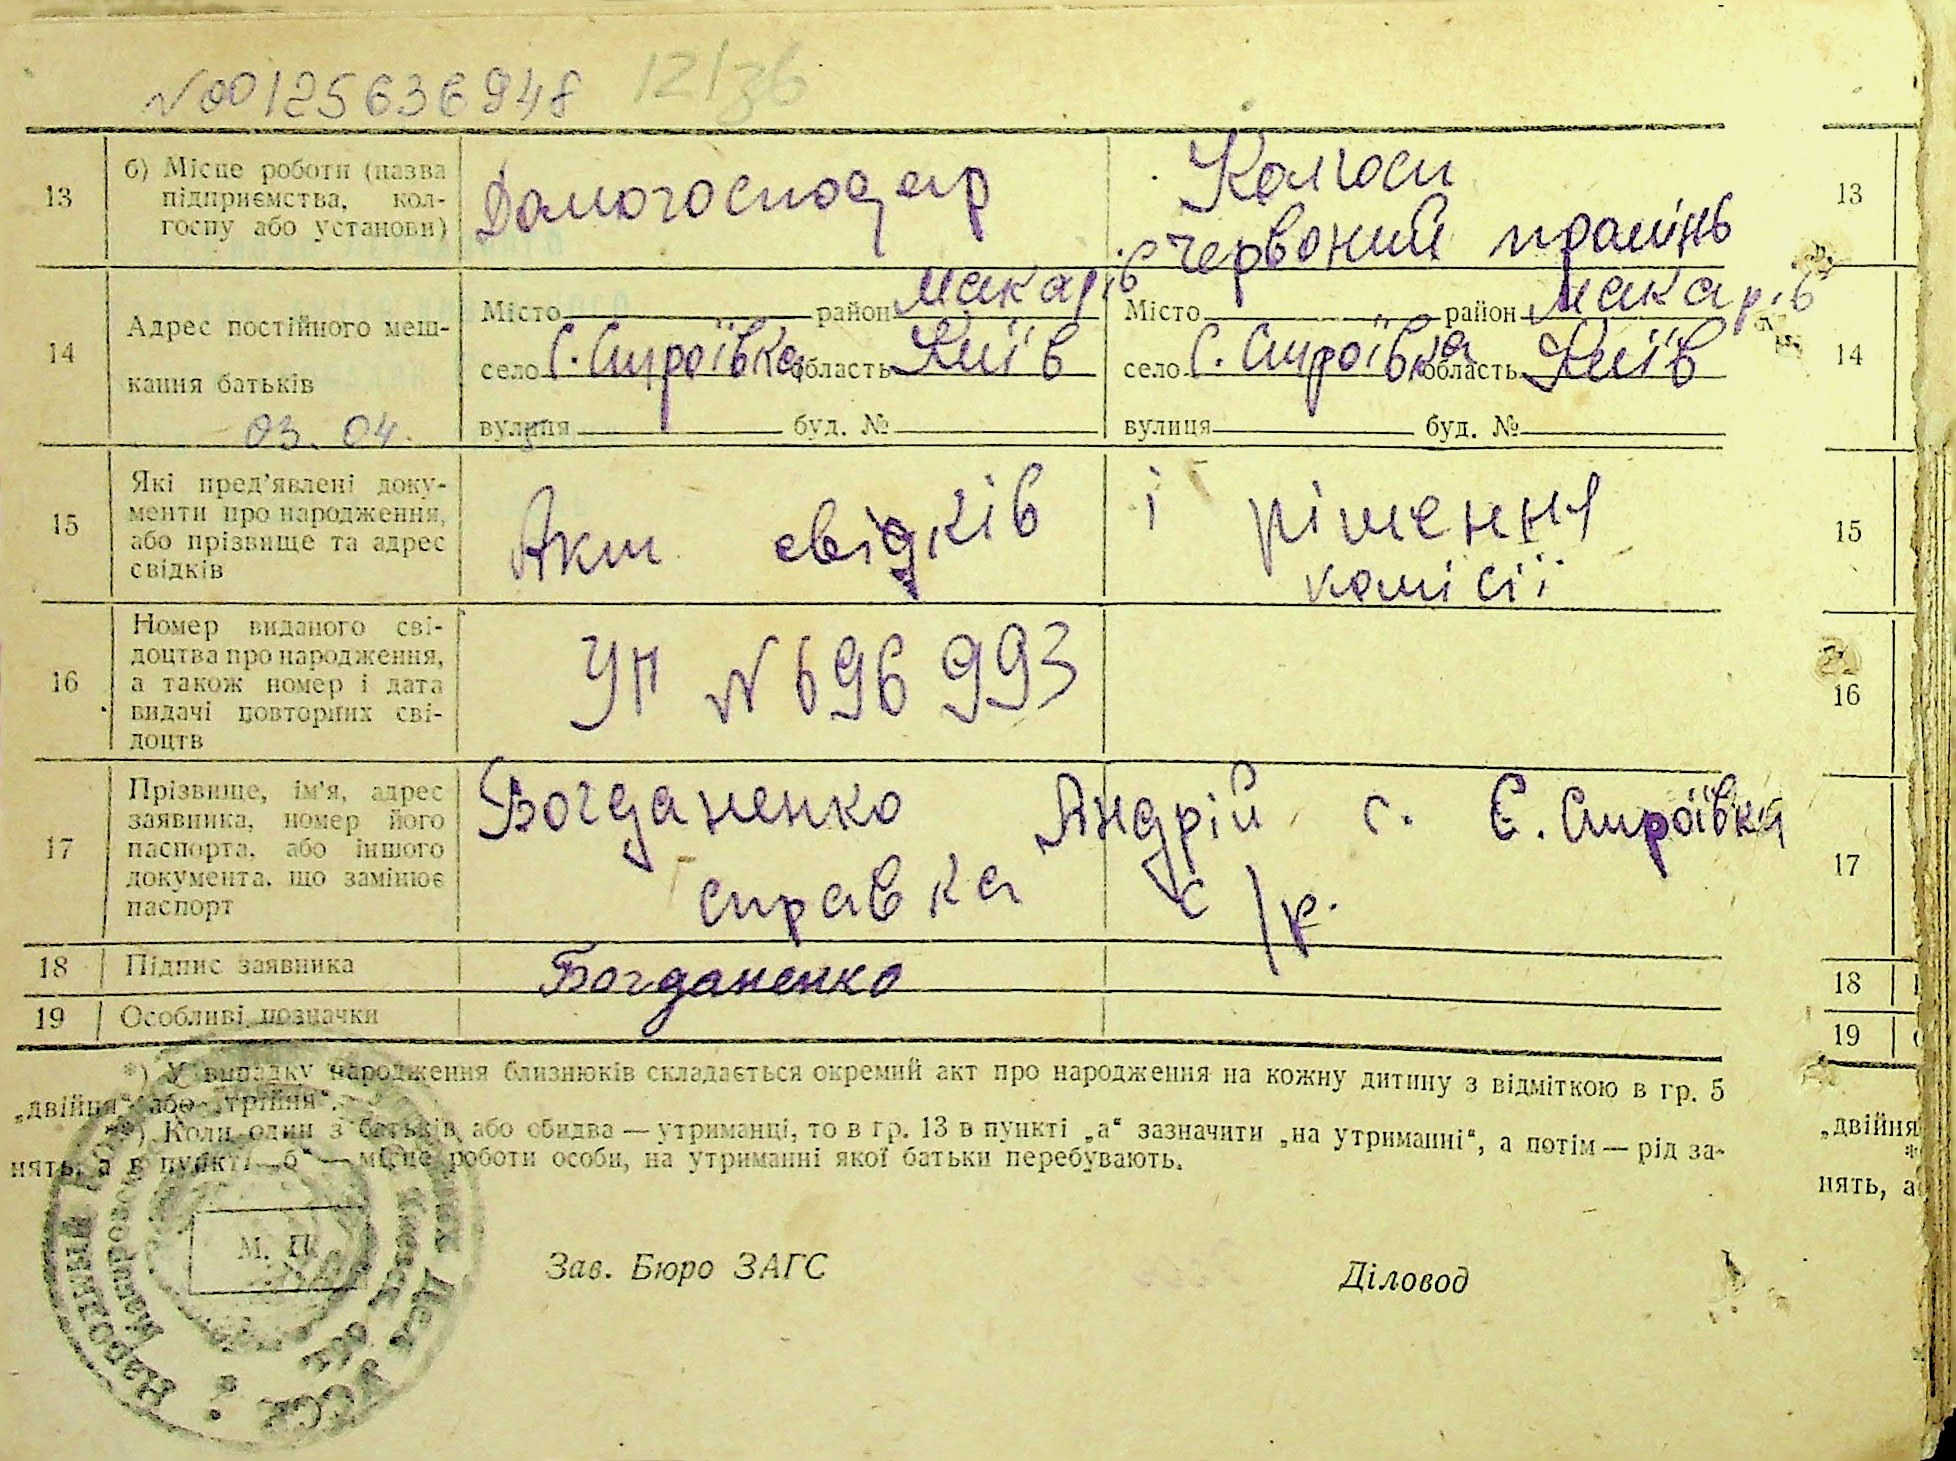 №00125636948 12/36
13 б) Місце роботи (назва підприємства, кол-госпу або установи) Домогосподар Колгосп
червоний промінь 13
14 Адрес постійного меш-кання батьків
Місто район Макарів Місто район Макарів
село С. Ситроївка область Київ село С. Ситроївка область Київ 14
03. 04. вулиця буд. № вулиця буд. №
15 Які пред’явлені доку-
менти про народження,
або прізвище та адрес
свідків
Акт свідків і рішення
комісії 15
16 Номер виданого сві-
доцтва про народження,
а також номер і дата
видачі повторних сві-
доцтв
УП №696993 16
17 Прізвище, ім’я, адрес
заявника, номер його
паспорта, або іншого
документа, що замінює
паспорт
Богданенко Андрій с. Є. Ситроївка
справка с/р. 17
18 Підпис заявника Богданенко 18
19 Особливі позначки 19
*) У випадку народження близнюків складається окремий акт про народження на кожну дитину з відміткою в гр. 5
„двійня“ або „трійня“.
) Коли один з батьків, або обидва — утриманці, то в гр. 13 в пункті „а“ зазначити „на утриманні“, а потім — рід за-
нять, а в пункті „б“ — місце роботи особи, на утриманні якої батьки перебувають.
„двійня
нять, а
М. П.
Зав. Бюро ЗАГС Діловод
Народный Дел УССР